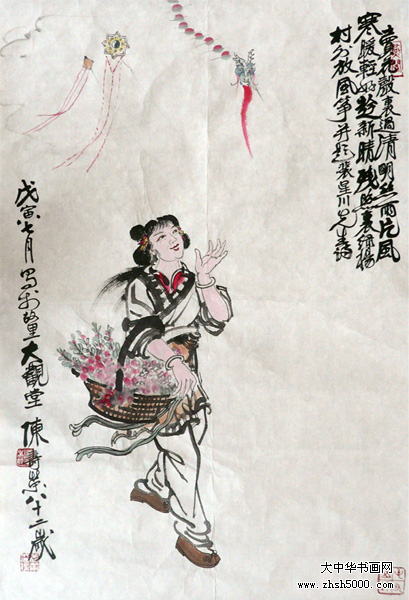 賣花聲裏過清明絲雨片風
寒暖輕好趁新晴殘照裏綠楊
村外放風箏并題裴星川先生詩
戊寅七月寫於大觀堂陳壽榮八十二歲
大中华书画网
www.zhsh5000.com